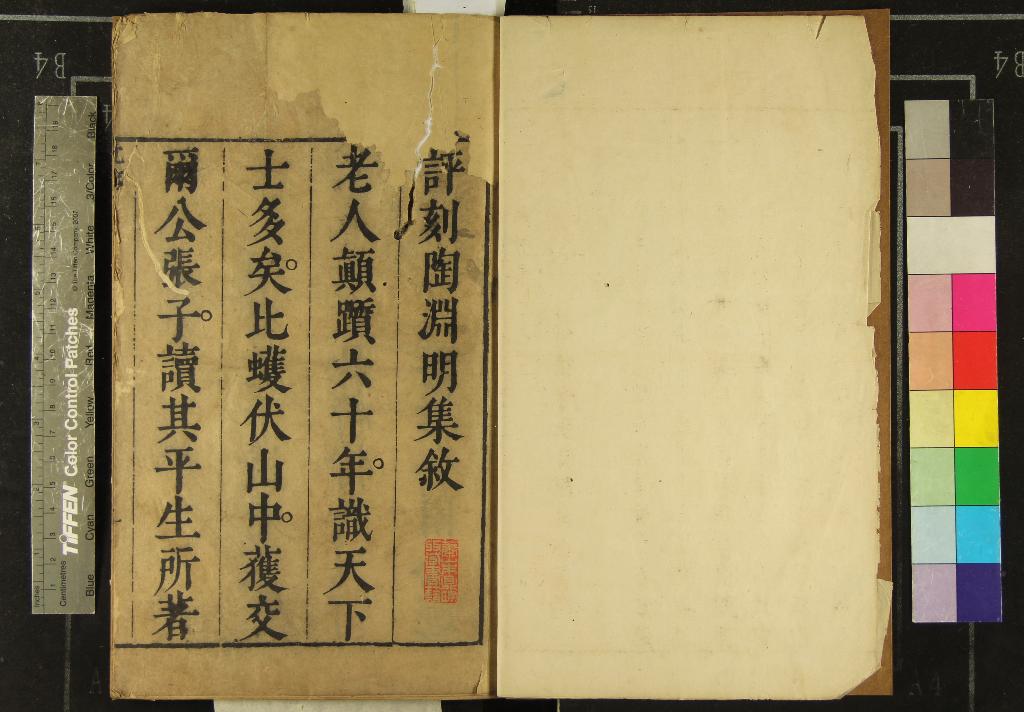 評刻陶淵明集敘
老人顛躓六十年。識天下
士多矣。比蠖伏山中。獲交
爾公張子。讀其平生所著
B4
B4
TIFFEN Color Control Patches
© The Tiffen Company, 2007
Inches
Centimetres
Blue
Cyan
Green
Yellow
Red
Magenta
White
3/Color
Black
A4